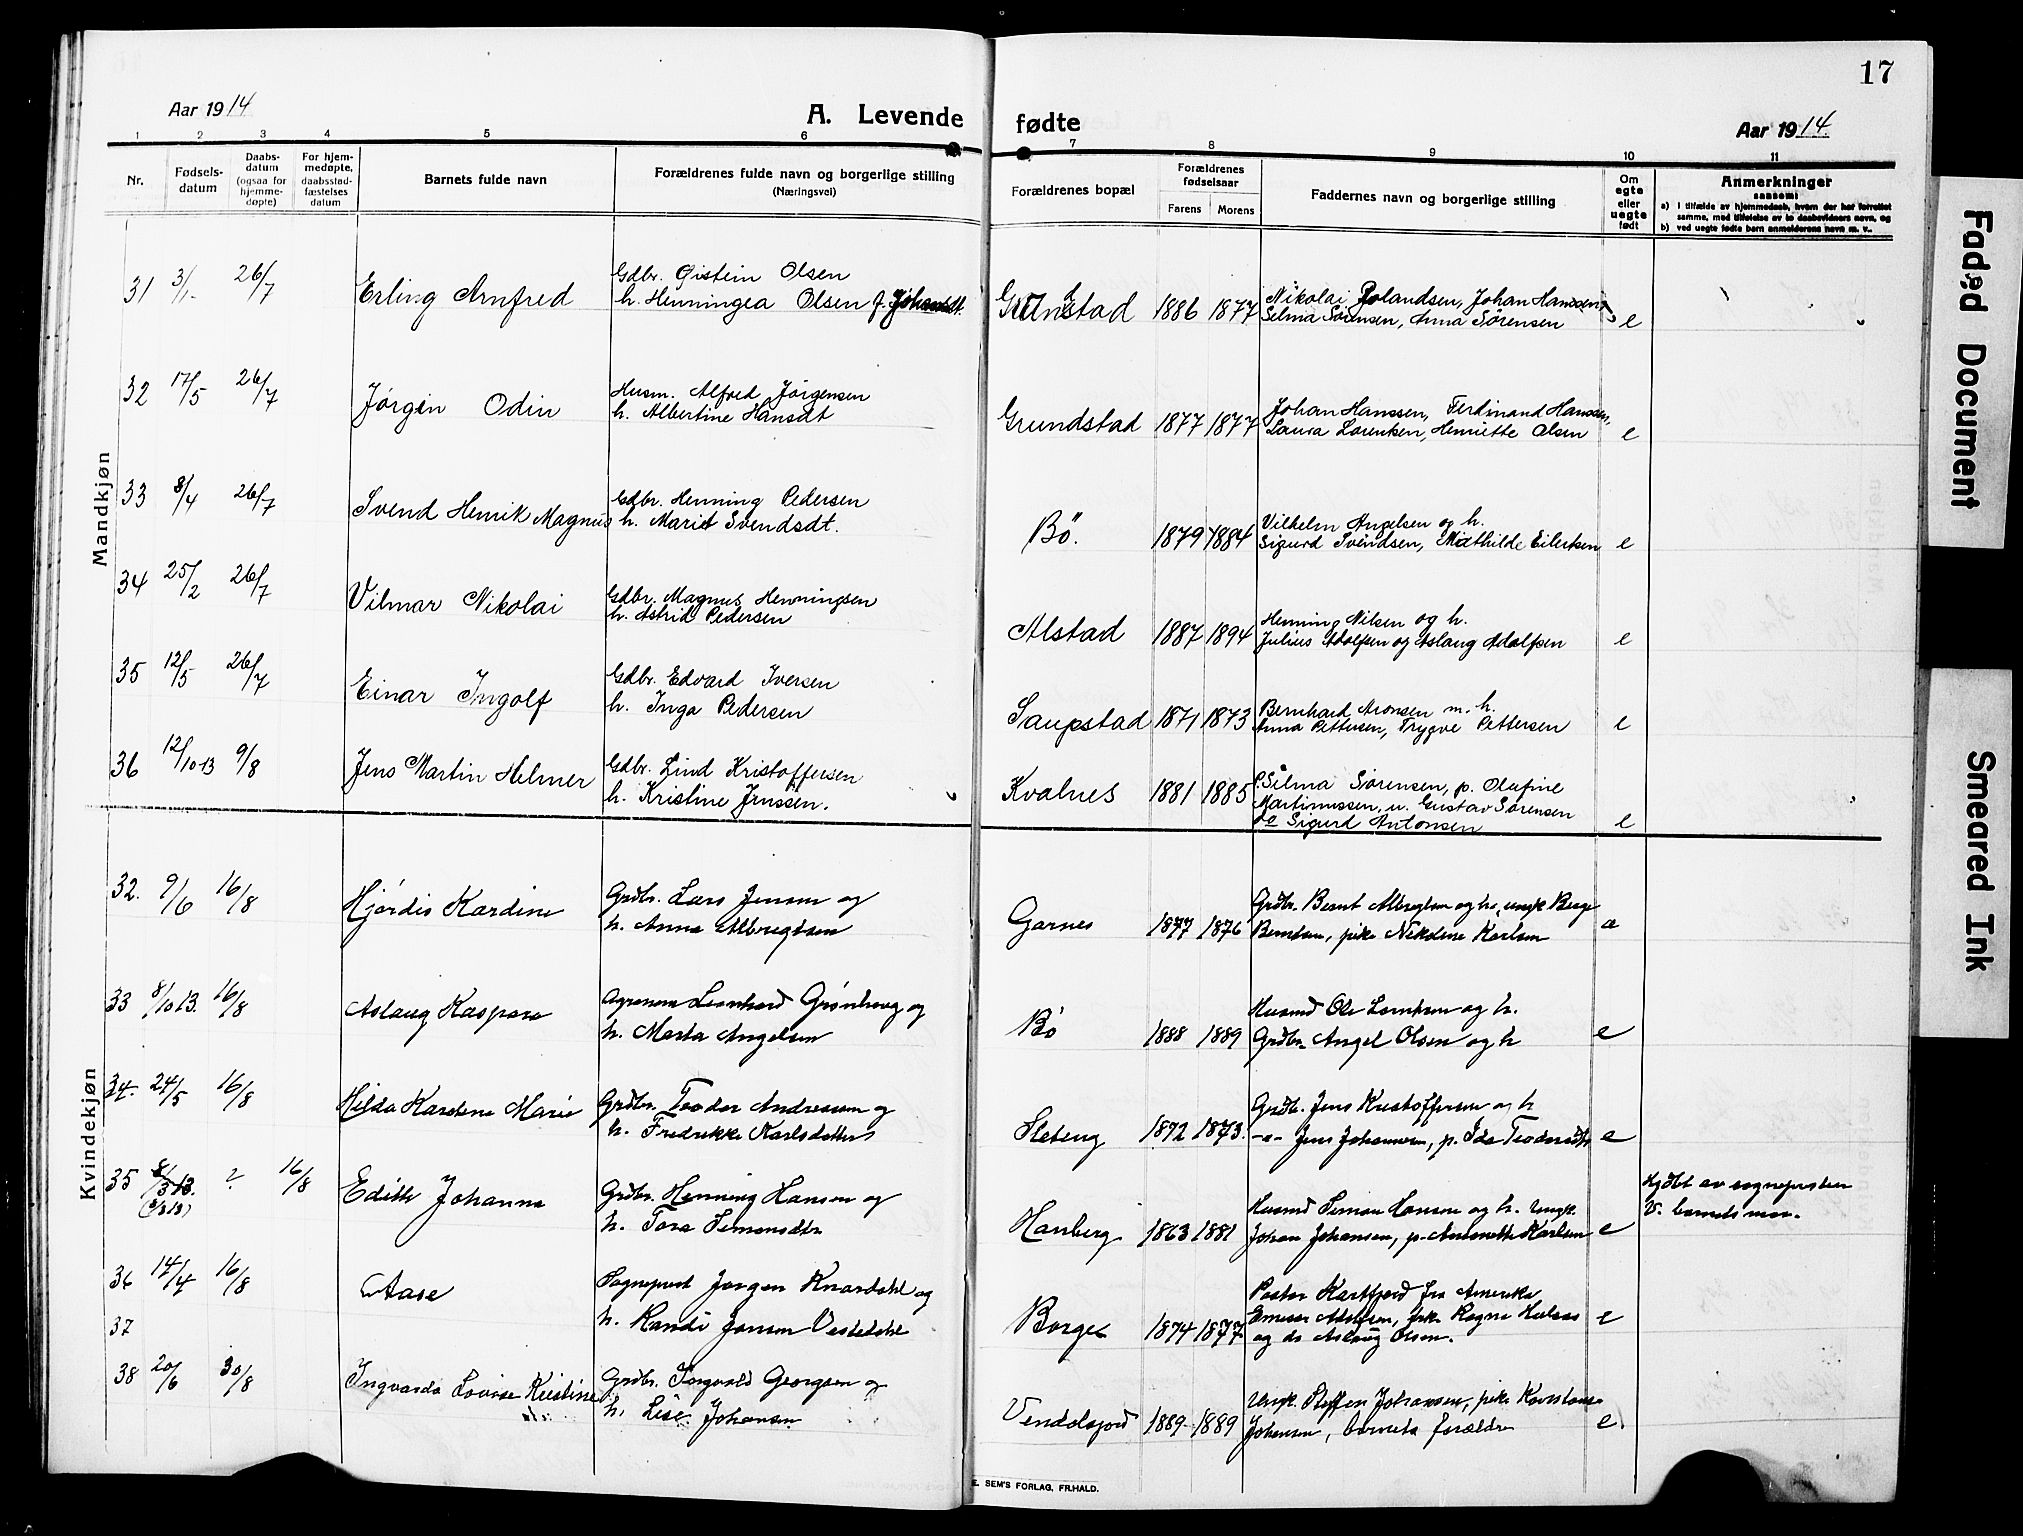 17
Aar 1914
A. Levende fødte
Aar 1914.
1 2 3 4 5 6 7 8 9 10 11
Nr.
Fødsels-
datum
Daabs-
datum
(ogsaa for
hjemme-
døpte)
For hjem-
medøpte,
daabsstad-
fæstelses
datum
Barnets fulde navn
Forældrenes fulde navn og borgerlige stilling
(Næringsvei)
Forældrenes bopæl
Forældrenes
fødselsaar
Farens Morens
Faddernes navn og borgerlige stilling
Om
egte
eller
uegte
født
Anmerkninger
sansem:
a) I tilfælde av hjemmedaab, hvem der har forrettet
samme, med tilføielse av to daabsvidners navn, og
b) ved uegte fødte barn anmelderens navn m. v..
Mandkjøn
31 3/1 26/7 Erling Arnfred
Gdbr. Øistein Olsen
h. Henningea Olsen f.
Grundstad 1886 1877
Nikolai Rolandsen, Johan Hanssen,
Selma Sørensen, Anna Sørensen e
32 17/5 26/7 Jørgen Odin
Husm. Alfred Jørgensen
h. Albertine Hansdt
Grundstad 1877 1877
Johan Hanssen, Ferdinand Hanssen,
Laura Lorentsen, Henriette Olsen e
33 8/4 26/7 Svend Henrik Magnus
Gdbr. Henning Pedersen
h. Marie Svendsdt.
Bö. 1879 1884
Vilhelm Angelsen og h.
Sigurd Svendsen, Mathilde Eilertsen e
34 25/2 26/7 Vilmar Nikolai
Gdbr. Magnus Henningsen
h. Astrid Pedersen
Alstad 1887 1894
Henning Nilsen og h.
Julius Adolfsen og Aslaug Adolfsen e
35 12/5 26/7 Einar Ingolf
Gdbr. Edvard Iversen
h. Inga Pedersen
Saupstad 1871 1873
Bernhard Aronsen m. h.
Anna Pettersen, Trygve Pettersen e
36 12/10 13 9/8 Jens Martin Helmer
Gdbr. Lind Kristoffersen
h. Kristine Jenssen.
Kvalnes 1881 1885
p. Silma Sørensen, p. Olufine
Martinussen, u. Gustav Sørensen
do Sigurd Antonsen e
Kvindekjøn
32. 9/6 16/8 Hjördis Kardine
Grdbr. Lars Jensen og
h. Anna Albregtsen
Garnes 1877 1876
Grdbr. Bernt Albregtsen og h., ungk. Berge
Berntsen, pike Nikoline Karlsen e
33 8/10 13. 16/8 Aslaug Kaspara
Agronom Leonhard Grønhaug og
h. Marta Angelsen
Bö 1888 1889
Husmd Ole Lorntsen og h.
Grdbr. Angel Olsen og h e
34. 24/5 16/8 Hilda Kardine Marie
Grdbr. Teodor Andreassen og
h. Fredrikke Karlsdatter
Sleteng 1872 1873.
Grdb. Jens Kristoffersen og h
-"- Jens Johannesen, p. Ida Teodorsdtr e
35 8/3 13. ? 16/8 Edith Johanne
Grdbr. Henning Hansen og
h. Tora Simonsdtr
Hanberg 1863 1881
Husmd Simon Hansen og h. Ungk.
Johan Johansen, p. Antonette Karlsen e
Hjdbt av sognepresten
V. barnets mor.
36 14/4 16/8 Aase
Sogneprest Jørgen Knardahl og
h. Randi Jonsen Vestedahl
Borge 1874 1877
Pastor Kartfjord fra Amerika
Adolfsen, frk. Ragna
og do Aslaug Olsen. e
37
38 20/6 30/8 Ingvarda Lovise Kristine
Grdbr. Ingvald Georgsen og
h. Lise Johansen
Vendalsjord 1889 1889
Ungk. Steffen Johansen, pike Konstanse
Johansen, barnets forældre e.
E. SEM'S FORLAG, FR.HALD.
Faded Document
Smeared Ink